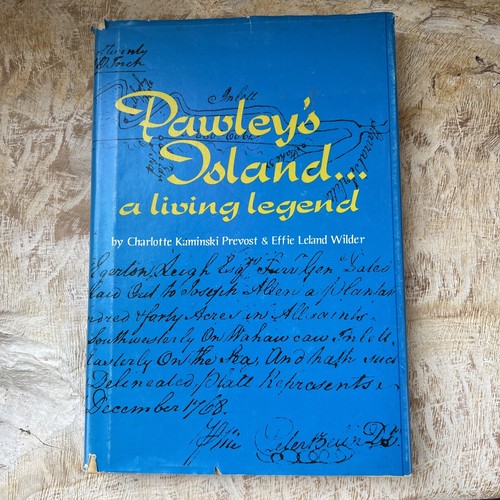 Twenty
Inlett
Pawley's
Island...
a living legend
by Charlotte Kaminski Prevost & Effie Leland Wilder
Egerton Leigh Esqr Surv Gen Dates
laid Out to Joseph Allen a Plantat
ndred & forty Acres in All Saints
Southwesterly On Wahawcaw Inlett
Easterly On the Sea. And hath such
Delineated, Platt Represents
December 1768.
Peter DS.